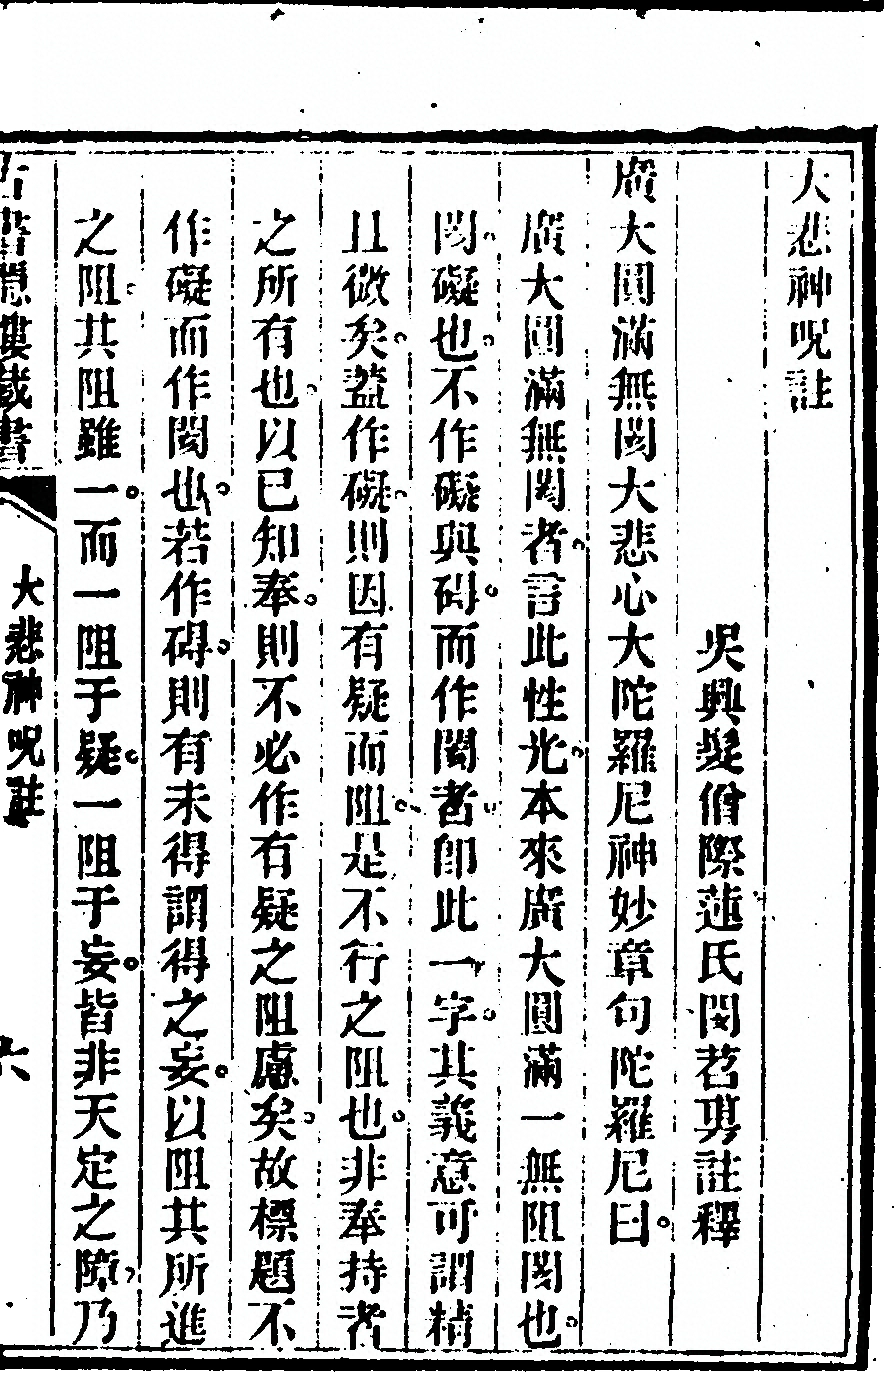 大悲神呪註
吳興髮僧際蓮氏閔苕旉註釋
廣大圓滿無閡大悲心大陀羅尼神妙章句陀羅尼曰。
廣大圓滿無閡者。言此性光。本來廣大圓滿一無阻閡也。
閡。礙也。不作礙與碍。而作閡者。卽此一字。其義意可謂精
且微矣。葢作礙。則因有疑而阻。是不行之阻也。非奉持者
之所有也。以已知奉。則不必作有疑之阻慮矣。故標題不
作礙而作閡也。若作碍。則有未得謂得之妄。以阻其所進
之阻。其阻雖一。而一阻于疑。一阻于妄。皆非天定之障。乃
古書隱樓藏書
大悲神呪註
六